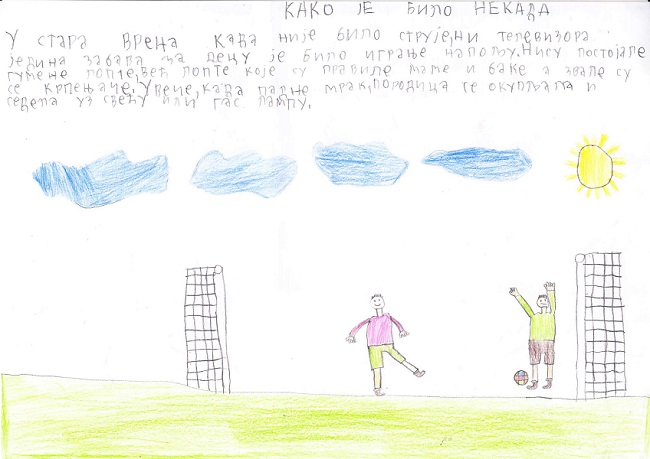 КАКО ЈЕ БИЛО НЕКАДА
У СТАРА ВРЕМА КАДА НИЈЕ БИЛО СТРУЈЕ,НИ ТЕЛЕВИЗОРА
ЈЕДИНА ЗАБАВА ЗА ДЕЦУ ЈЕ БИЛО ИГРАЊЕ НАПОЉУ.НИСУ ПОСТОЈАЛЕ
ГУМЕНЕ ЛОПТЕ,ВЕЋ ЛОПТЕ КОЈЕ СУ ПРАВИЛЕ МАМЕ И БАКЕ А ЗВАЛЕ СУ
СЕ КРПЕЊАЧЕ.УВЕЧЕ,КАДА ПАДНЕ МРАК,ПОРОДИЦА СЕ ОКУПЉАЛА И
СЕДЕЛА УЗ СВЕЋУ ИЛИ ГАС ЛАМПУ.